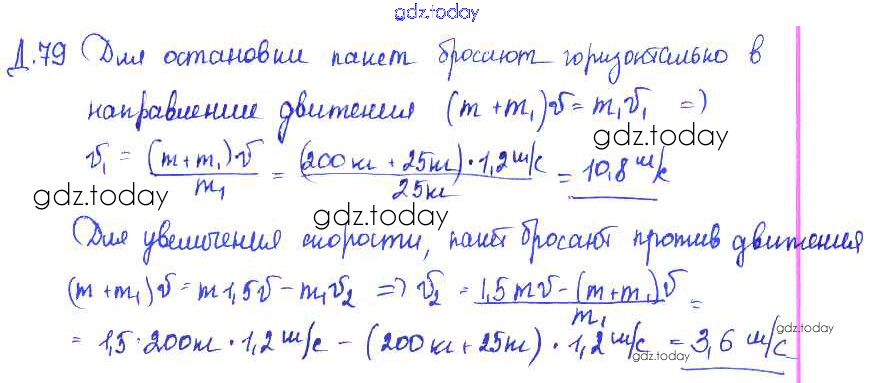 gdz.today
Д.79 Для остановки пакет бросают горизонтально в
направлении движения (m + m₁)v = m₁v₁ =>
gdz.today
v₁ = (m+m₁)v / m₁ = (200кг + 25кг) · 1,2м/с / 25кг = 10,8 м/с
gdz.today
gdz.today
Для увеличения скорости, пакет бросают против движения
(m + m₁)v = m1,5v − m₁v₂ => v₂ = 1,5mv − (m + m₁)v / m₁ =
gdz.today
= 1,5 · 200кг · 1,2 м/с − (200кг + 25кг) · 1,2 м/с = 3,6 м/с
gdz.today